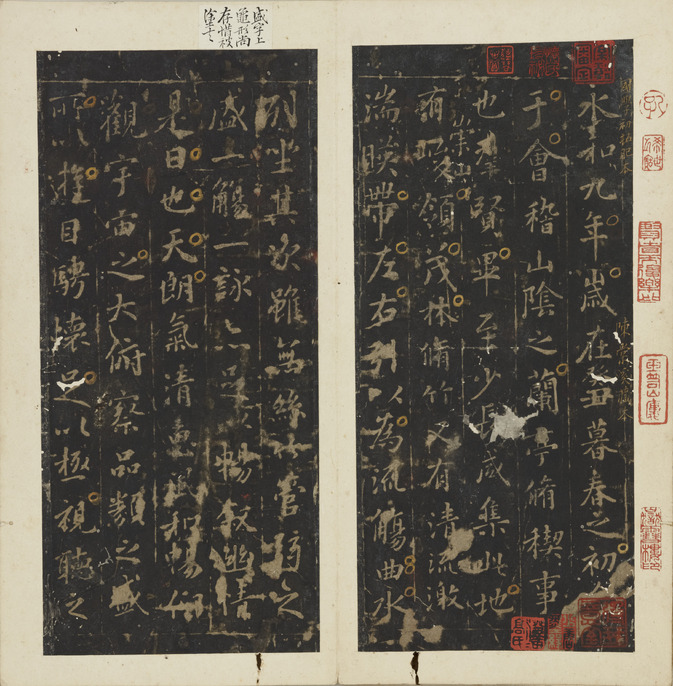 永和九年歲在癸丑暮春之初會
于會稽山陰之蘭亭脩稧事
也羣賢畢至少長咸集此地
有崇山峻領茂林脩竹又有清流激
湍暎帶左右引以為流觴曲水
盛字上
龜形尚
存惜被
列坐其次雖無絲竹管弦之
盛一觴一詠亦足以暢敘幽情
是日也天朗氣清惠風和暢仰
觀宇宙之大俯察品類之盛
所以遊目騁懷足以極視聽之